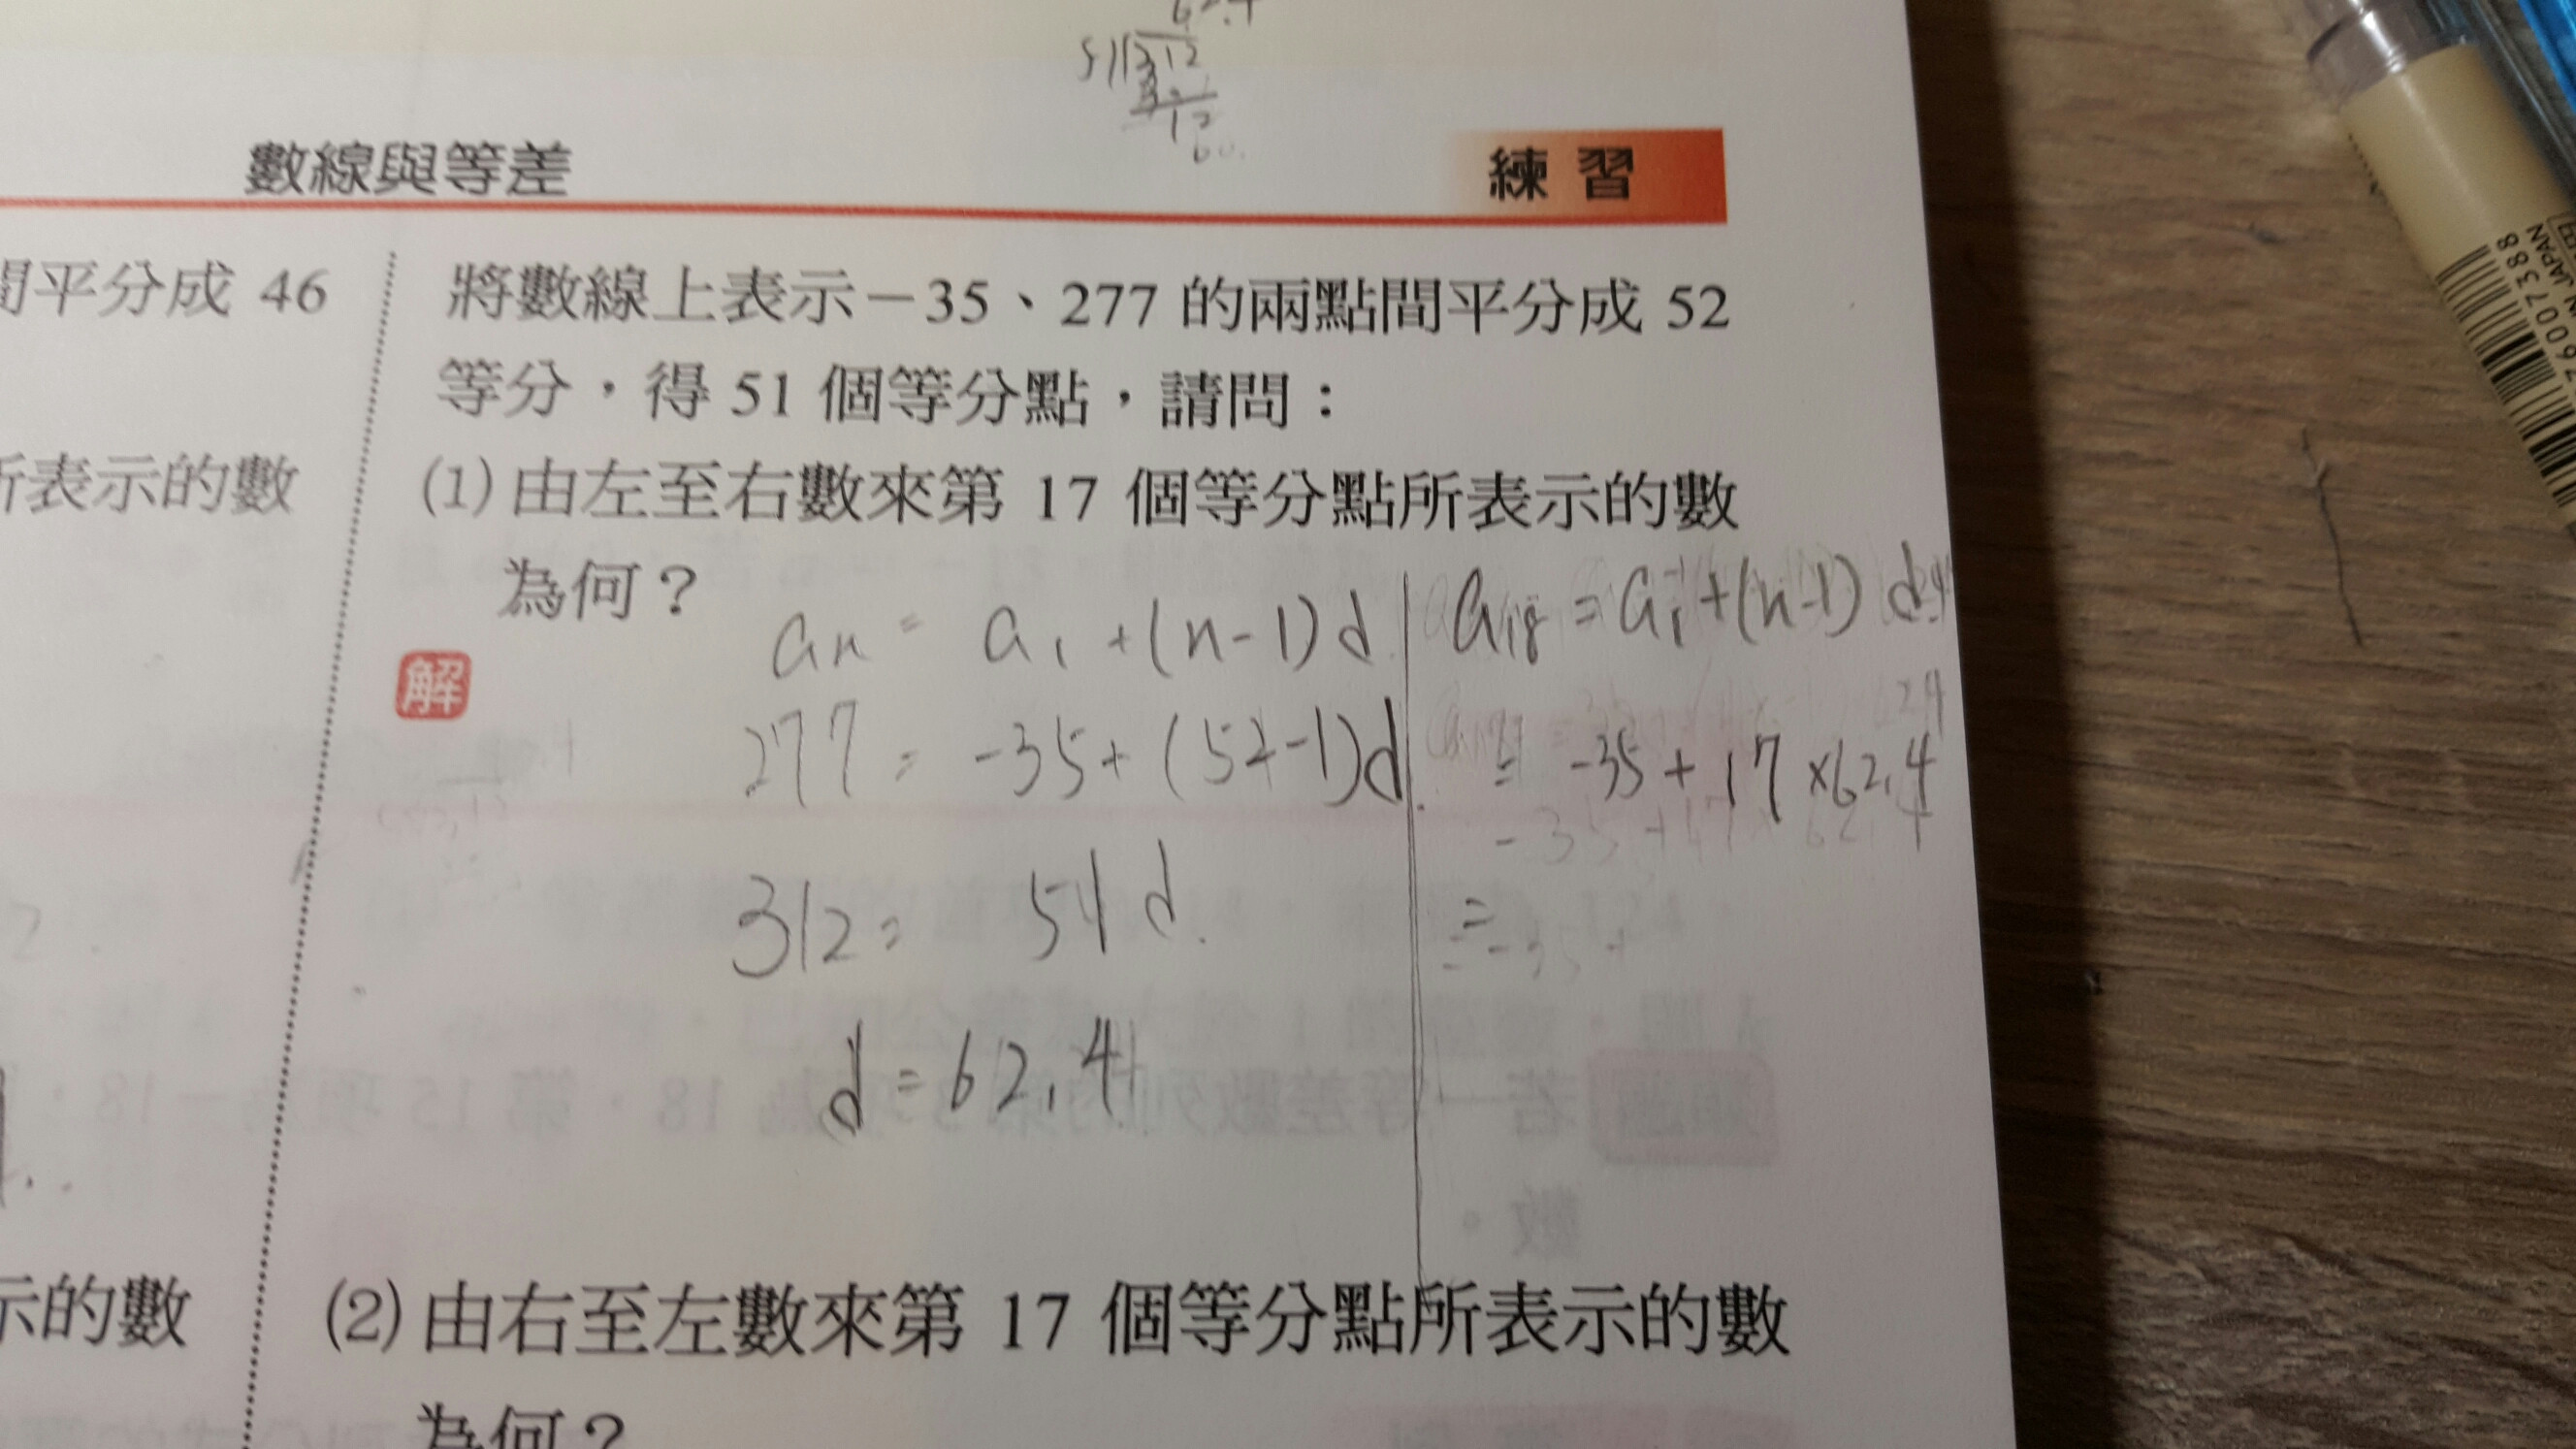 62.4
5112
12
60.
數線與等差
練習
間平分成 46
所表示的數
示的數
將數線上表示－35、277 的兩點間平分成 52
等分，得 51 個等分點，請問：
(1) 由左至右數來第 17 個等分點所表示的數
為何？
解
an = a1 + (n-1)d
277 = -35 + (52-1)d
312 = 51 d
d = 62.4
a18 = a1 + (n-1) d
= -35 + 17 × 62.4
=
(2) 由右至左數來第 17 個等分點所表示的數
為何？
JAPAN